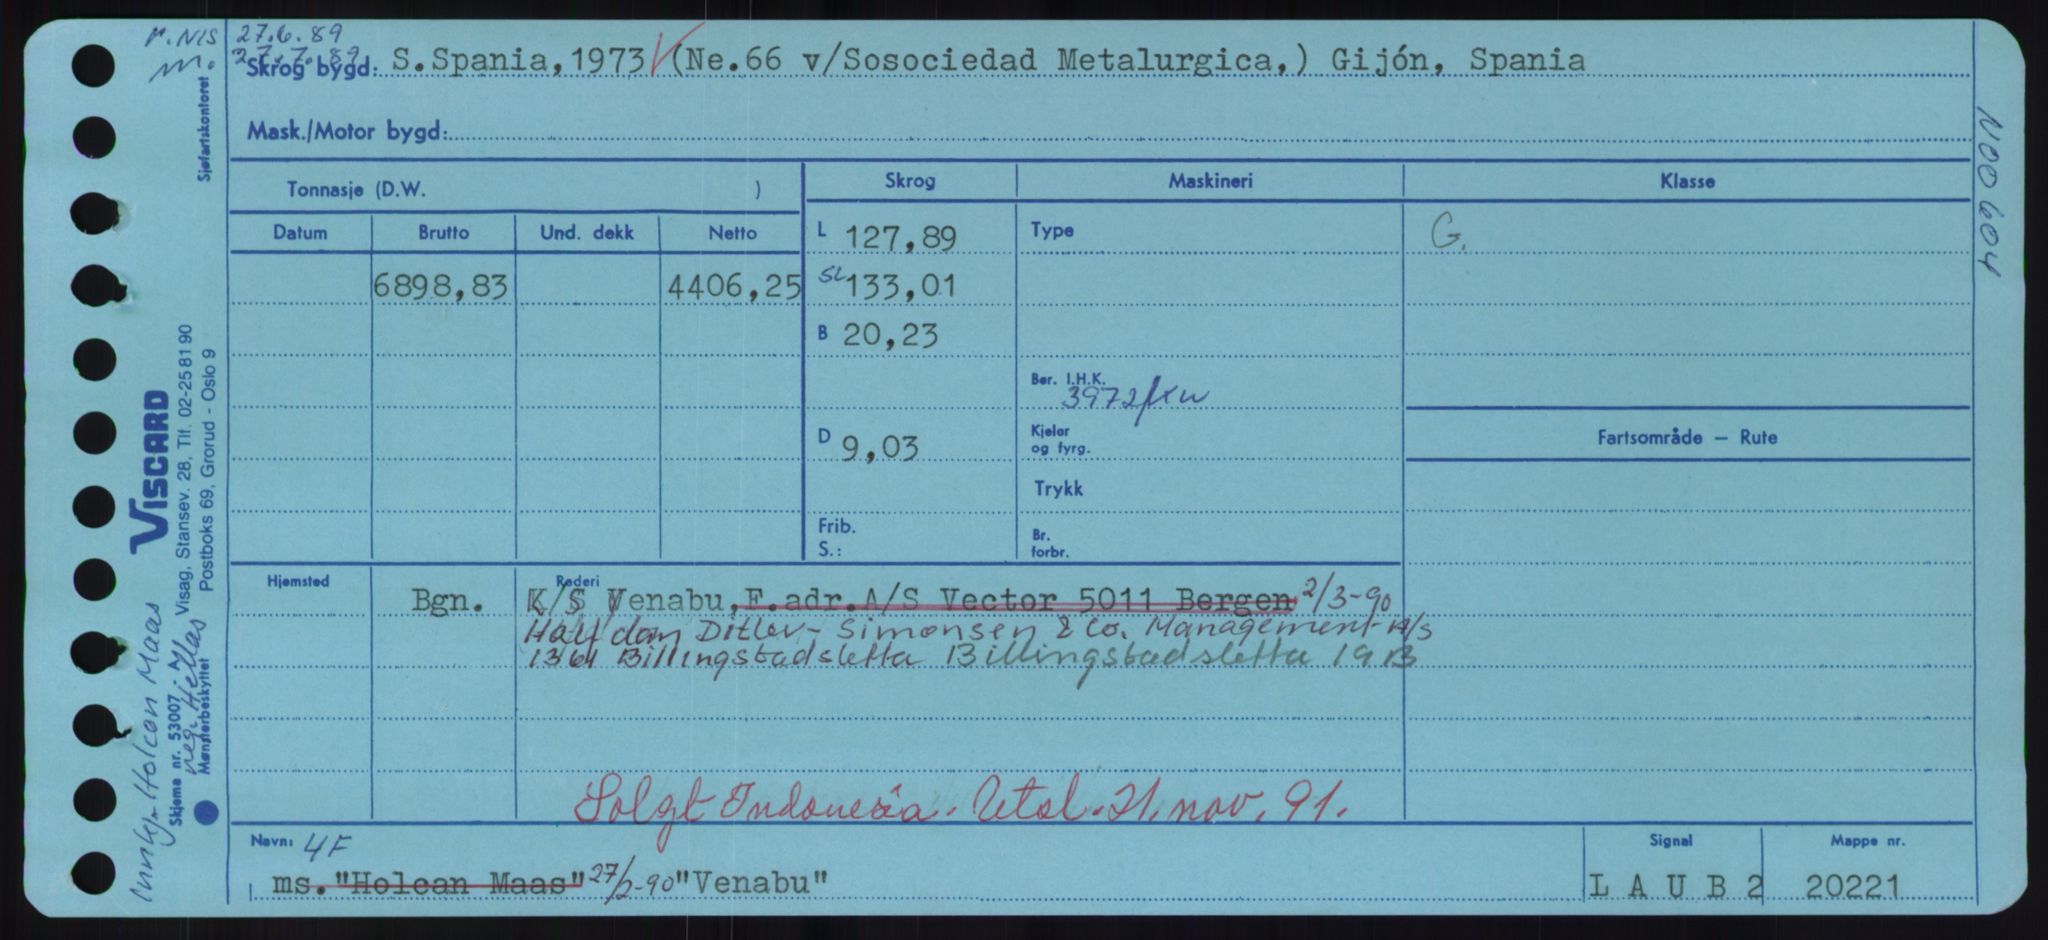 r. NIS 27.6.89
m. 27.7.89
Skrog bygd: S.Spania,1973 (Ne.66 v/Sosociedad Metalurgica,) Gijón, Spania
Mask./Motor bygd:
Sjøfartskontoret
N00604
Tonnasje (D.W. )
Skrog Maskineri Klasse
Datum Brutto Und. dekk Netto
L 127,89 Type G.
6898,83 4406,25 SL 133,01
B 20,23
Ber. I.H.K.
3972/KW
Fartsområde – Rute
D 9,03 Kjelar
og fyrg.
Trykk
Frib.
S.:
Br.
forbr.
VISCARD
Visag, Stansev. 28, Tlf. 02-25 81 90
Postboks 69, Grorud - Oslo 9
Skjema nr. 53007 - N
Mønsterbeskyttet
Holcan Maas
reg. Hellas
Hjemsted Rederi
Bgn. K/S Venabu, F.adr.A/S Vector 5011 Bergen 2/3-90
Halfdan Ditlev-Simonsen & Co. Management A/S
1361 Billingstadsletta Billingstadsletta 19B
Solgt Indonesia. Utsl. 21. nov. 91.
Navn: 4F Signal Mappe nr.
ms. "Holcan Maas" 27/2-90 "Venabu" L A U B 2 20221